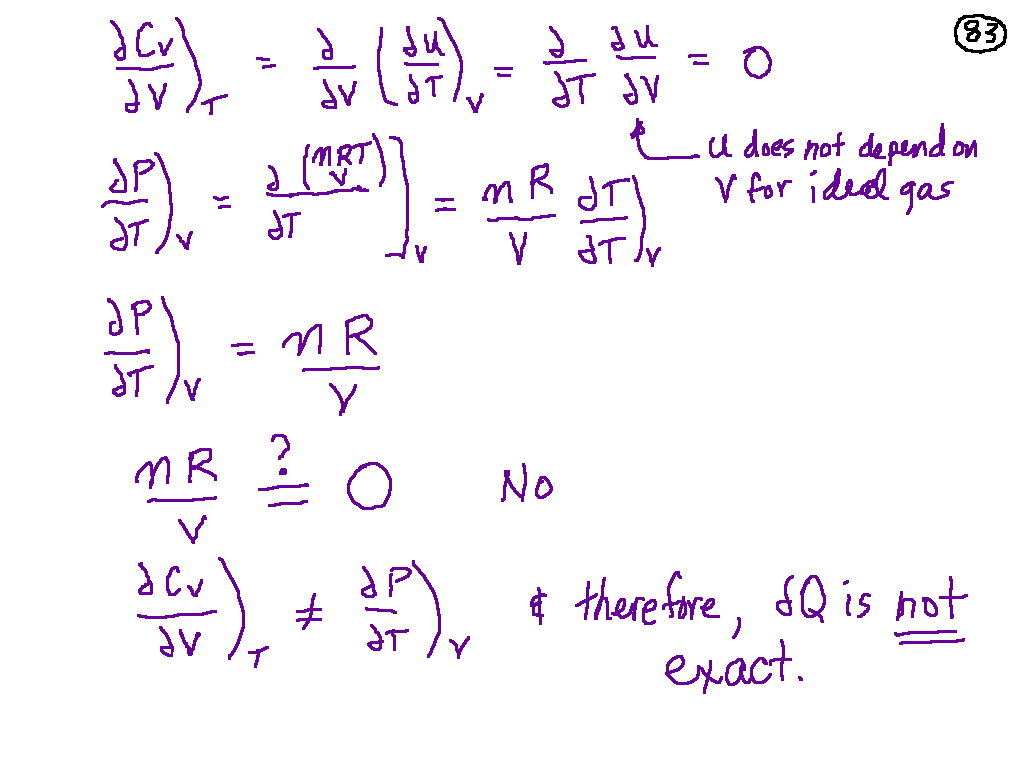 83
∂Cv/∂V)_T = ∂/∂V (∂U/∂T)_V = ∂/∂T ∂U/∂V = 0
U does not depend on
V for ideal gas
∂P/∂T)_V = ∂(nRT/V)/∂T]_V = nR/V ∂T/∂T)_V
∂P/∂T)_V = nR/V
nR/V ?= 0 No
∂Cv/∂V)_T ≠ ∂P/∂T)_V & therefore, dQ is not
exact.